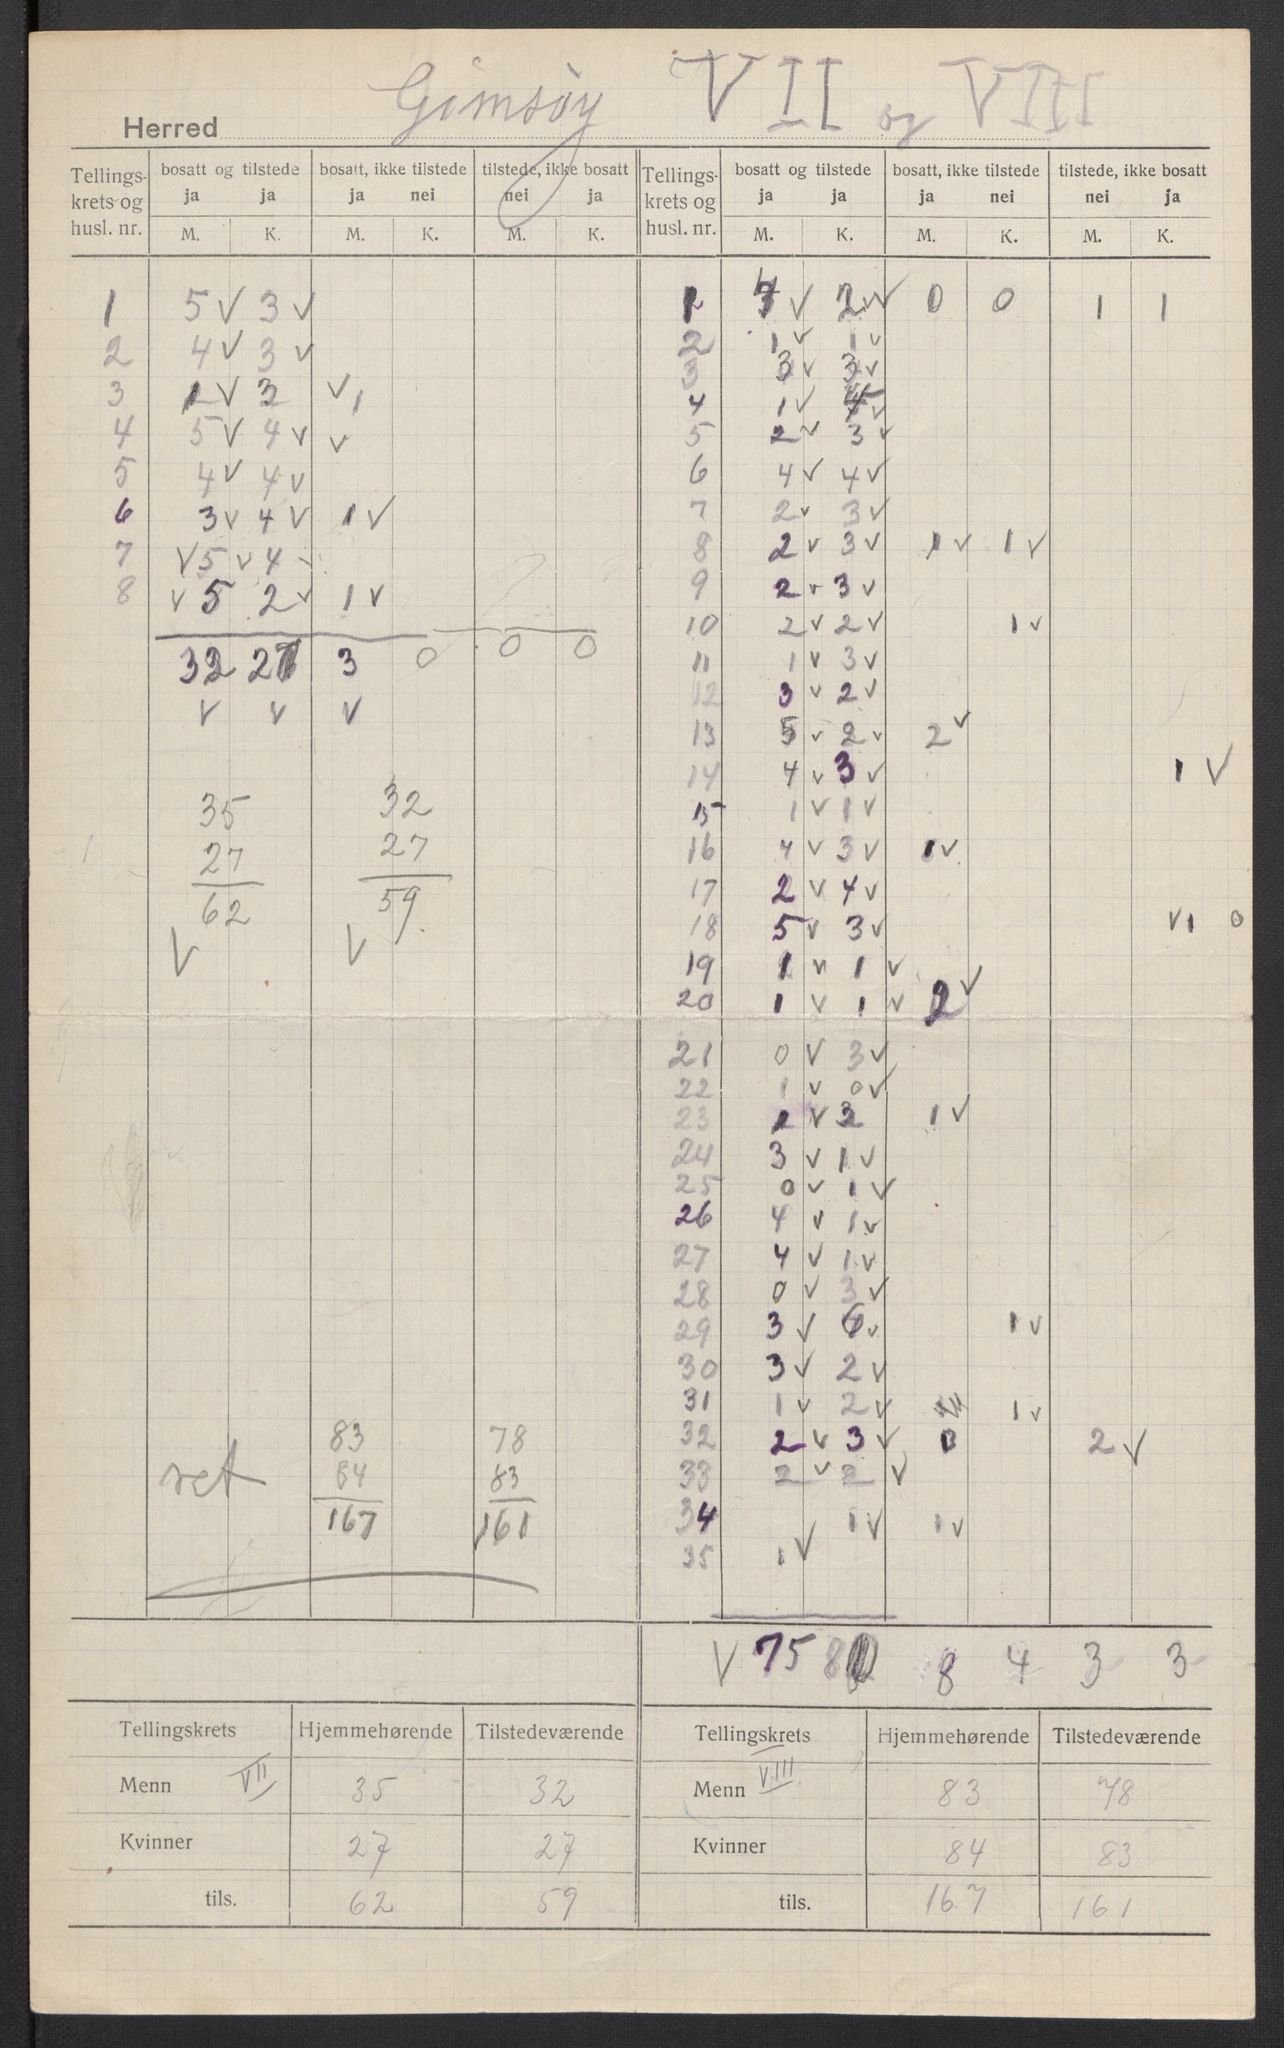 Herred Gimsøy VII og VIII
Tellings- krets og husl. nr. | bosatt og tilstede ja ja | bosatt, ikke tilstede ja nei | tilstede, ikke bosatt nei ja | Tellings- krets og husl. nr. | bosatt og tilstede ja ja | bosatt, ikke tilstede ja nei | tilstede, ikke bosatt nei ja
M. K. M. K. M. K. M. K. M. K. M. K.
1 5 √ 3 √
2 4 √ 3 √
3 1 √ 3 √ 1
4 5 √ 4 √ √
5 4 √ 4 √
6 3 √ 4 √ 1 √
7 √ 5 √ 4
8 √ 5 2 √ 1 √
32 27 3 0 0 0
√ √ √
35 32
27 27
62 59
√ √
83 78
ret 84 83
167 161
1 7 √ 2 √ 0 0 1 1
2 1 √ 1 √
3 3 √ 3 √
4 1 √ 4 √
5 2 √ 3 √
6 4 √ 4 √
7 2 √ 3 √
8 2 √ 3 √ 1 √ 1 √
9 2 √ 3 √
10 2 √ 2 √ 1 √
11 1 √ 3 √
12 3 √ 2 √
13 5 √ 2 √ 2 √
14 4 √ 3 √ 1 √
15 1 √ 1 √
16 4 √ 3 √ 1 √
17 2 √ 4 √
18 5 √ 3 √ √ 1 0
19 1 √ 1 √
20 1 √ 1 √ 2 √
21 0 √ 3 √
22 1 √ 0 √
23 1 √ 3 1 √
24 3 √ 1 √
25 0 √ 1 √
26 4 √ 1 √
27 4 √ 1 √
28 0 √ 3 √
29 3 √ 6 √ 1 √
30 3 √ 2 √
31 1 √ 2 √ 1 √
32 2 √ 3 √ 2 √
33 2 √ 2 √
34 1 √ 1 √
35 1 √
√ 75 80 8 4 3 3
Tellingskrets VII Hjemmehørende Tilstedeværende
Menn 35 32
Kvinner 27 27
tils. 62 59
Tellingskrets VIII Hjemmehørende Tilstedeværende
Menn 83 78
Kvinner 84 83
tils. 167 161